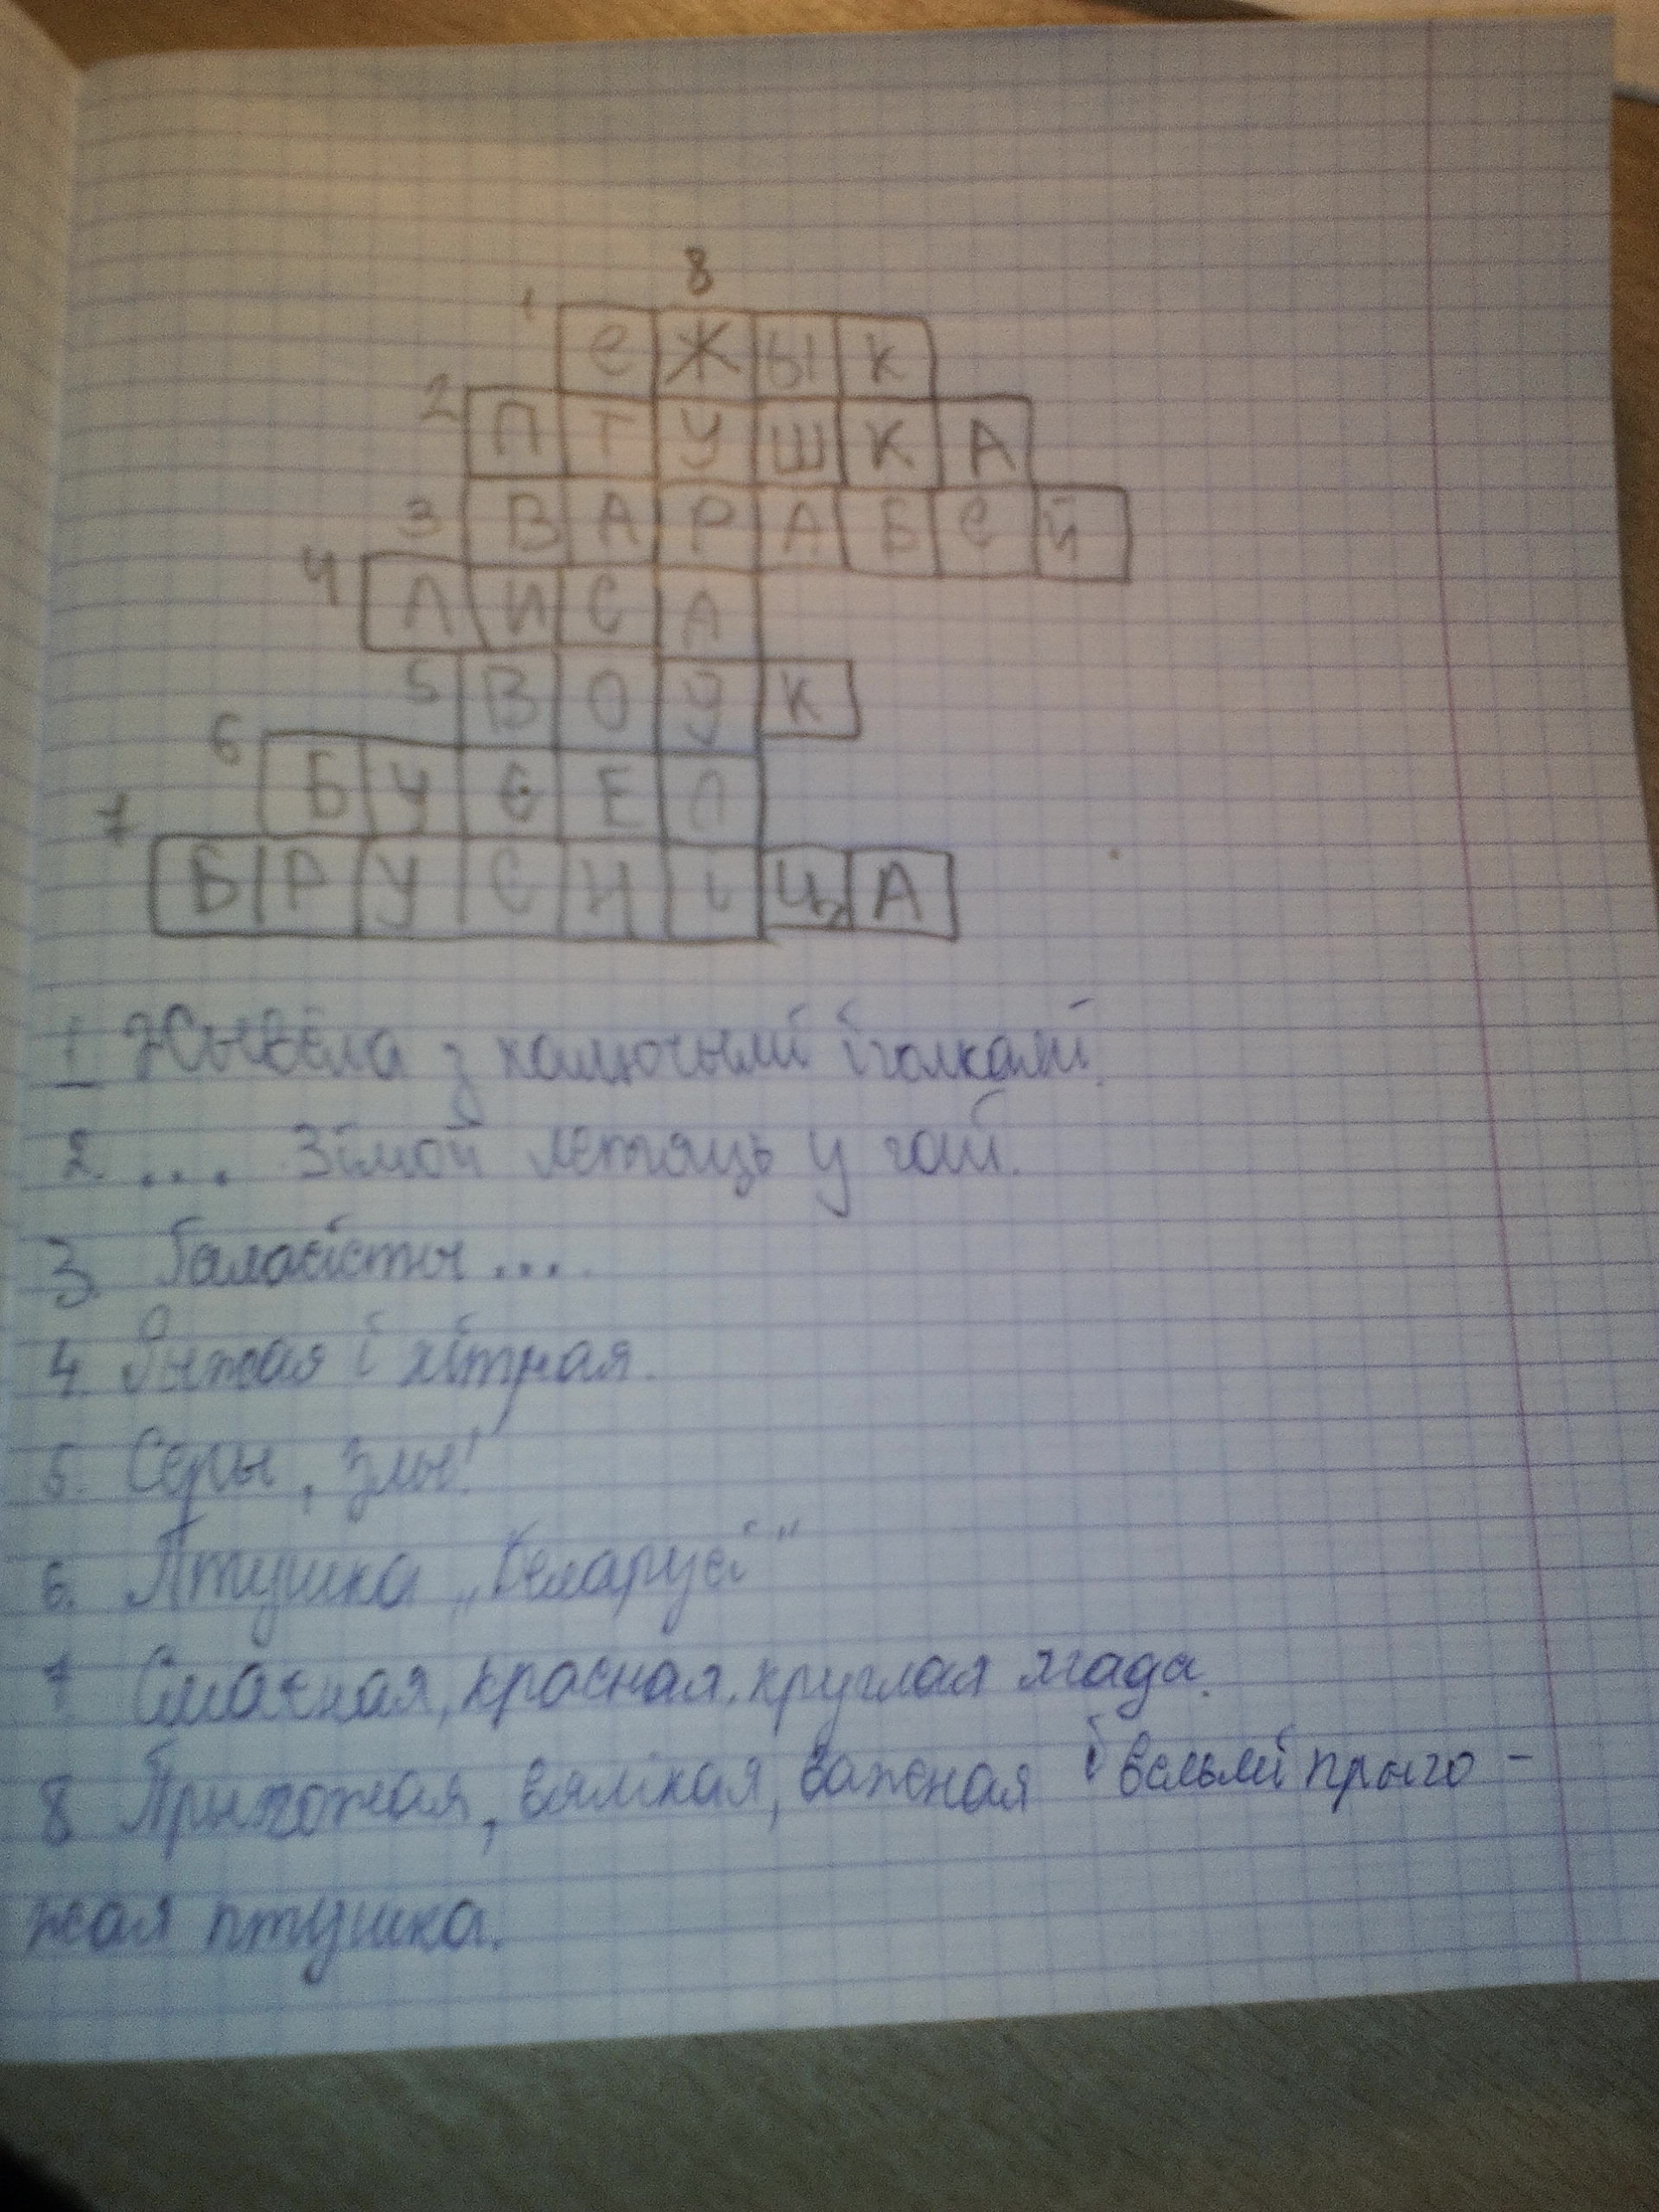 8
1 е Ж Ы К
2 П Т У Ш К А
3 В А Р А Б е Й
4 Л И С А
5 В О Ў К
6 Б У С Е Л
7 Б Р У С Н І Ц А
1 Жывёла з калючымі іголкамі.
2. .... Зімой летяць у гай.
3. Галасісты ...
4. Рыжая і хітрая.
5. Серы, злы!
6. Птушка „Беларусі"
7 Смачная, красная, круглая ягада.
8 Прыгожая, вялікая, важная і вельмі прыго-
жая птушка.